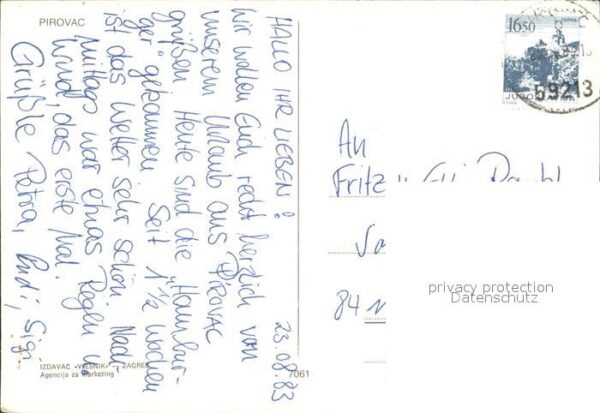 PIROVAC
HALLO IHR LIEBEN!
23.08.83
Wir wollen Euch recht herzlich von
unserem Urlaub aus PIROVAC
grüßen. Heute sind die "Hambur-
ger" gekommen. Seit 1 1/2 Wochen
ist das Wetter sehr schön. Nach-
mittags war etwas Regen u.
Wind, das erste Mal.
Grüßle Petra, Rudi, Sigi
IZDAVAČ «VJESNIK» — ZAGREB
Agencija za marketing
7061
16.50
JUGOSLAVIJA
59213
An
Fritz u.
84
privacy protection
Datenschutz